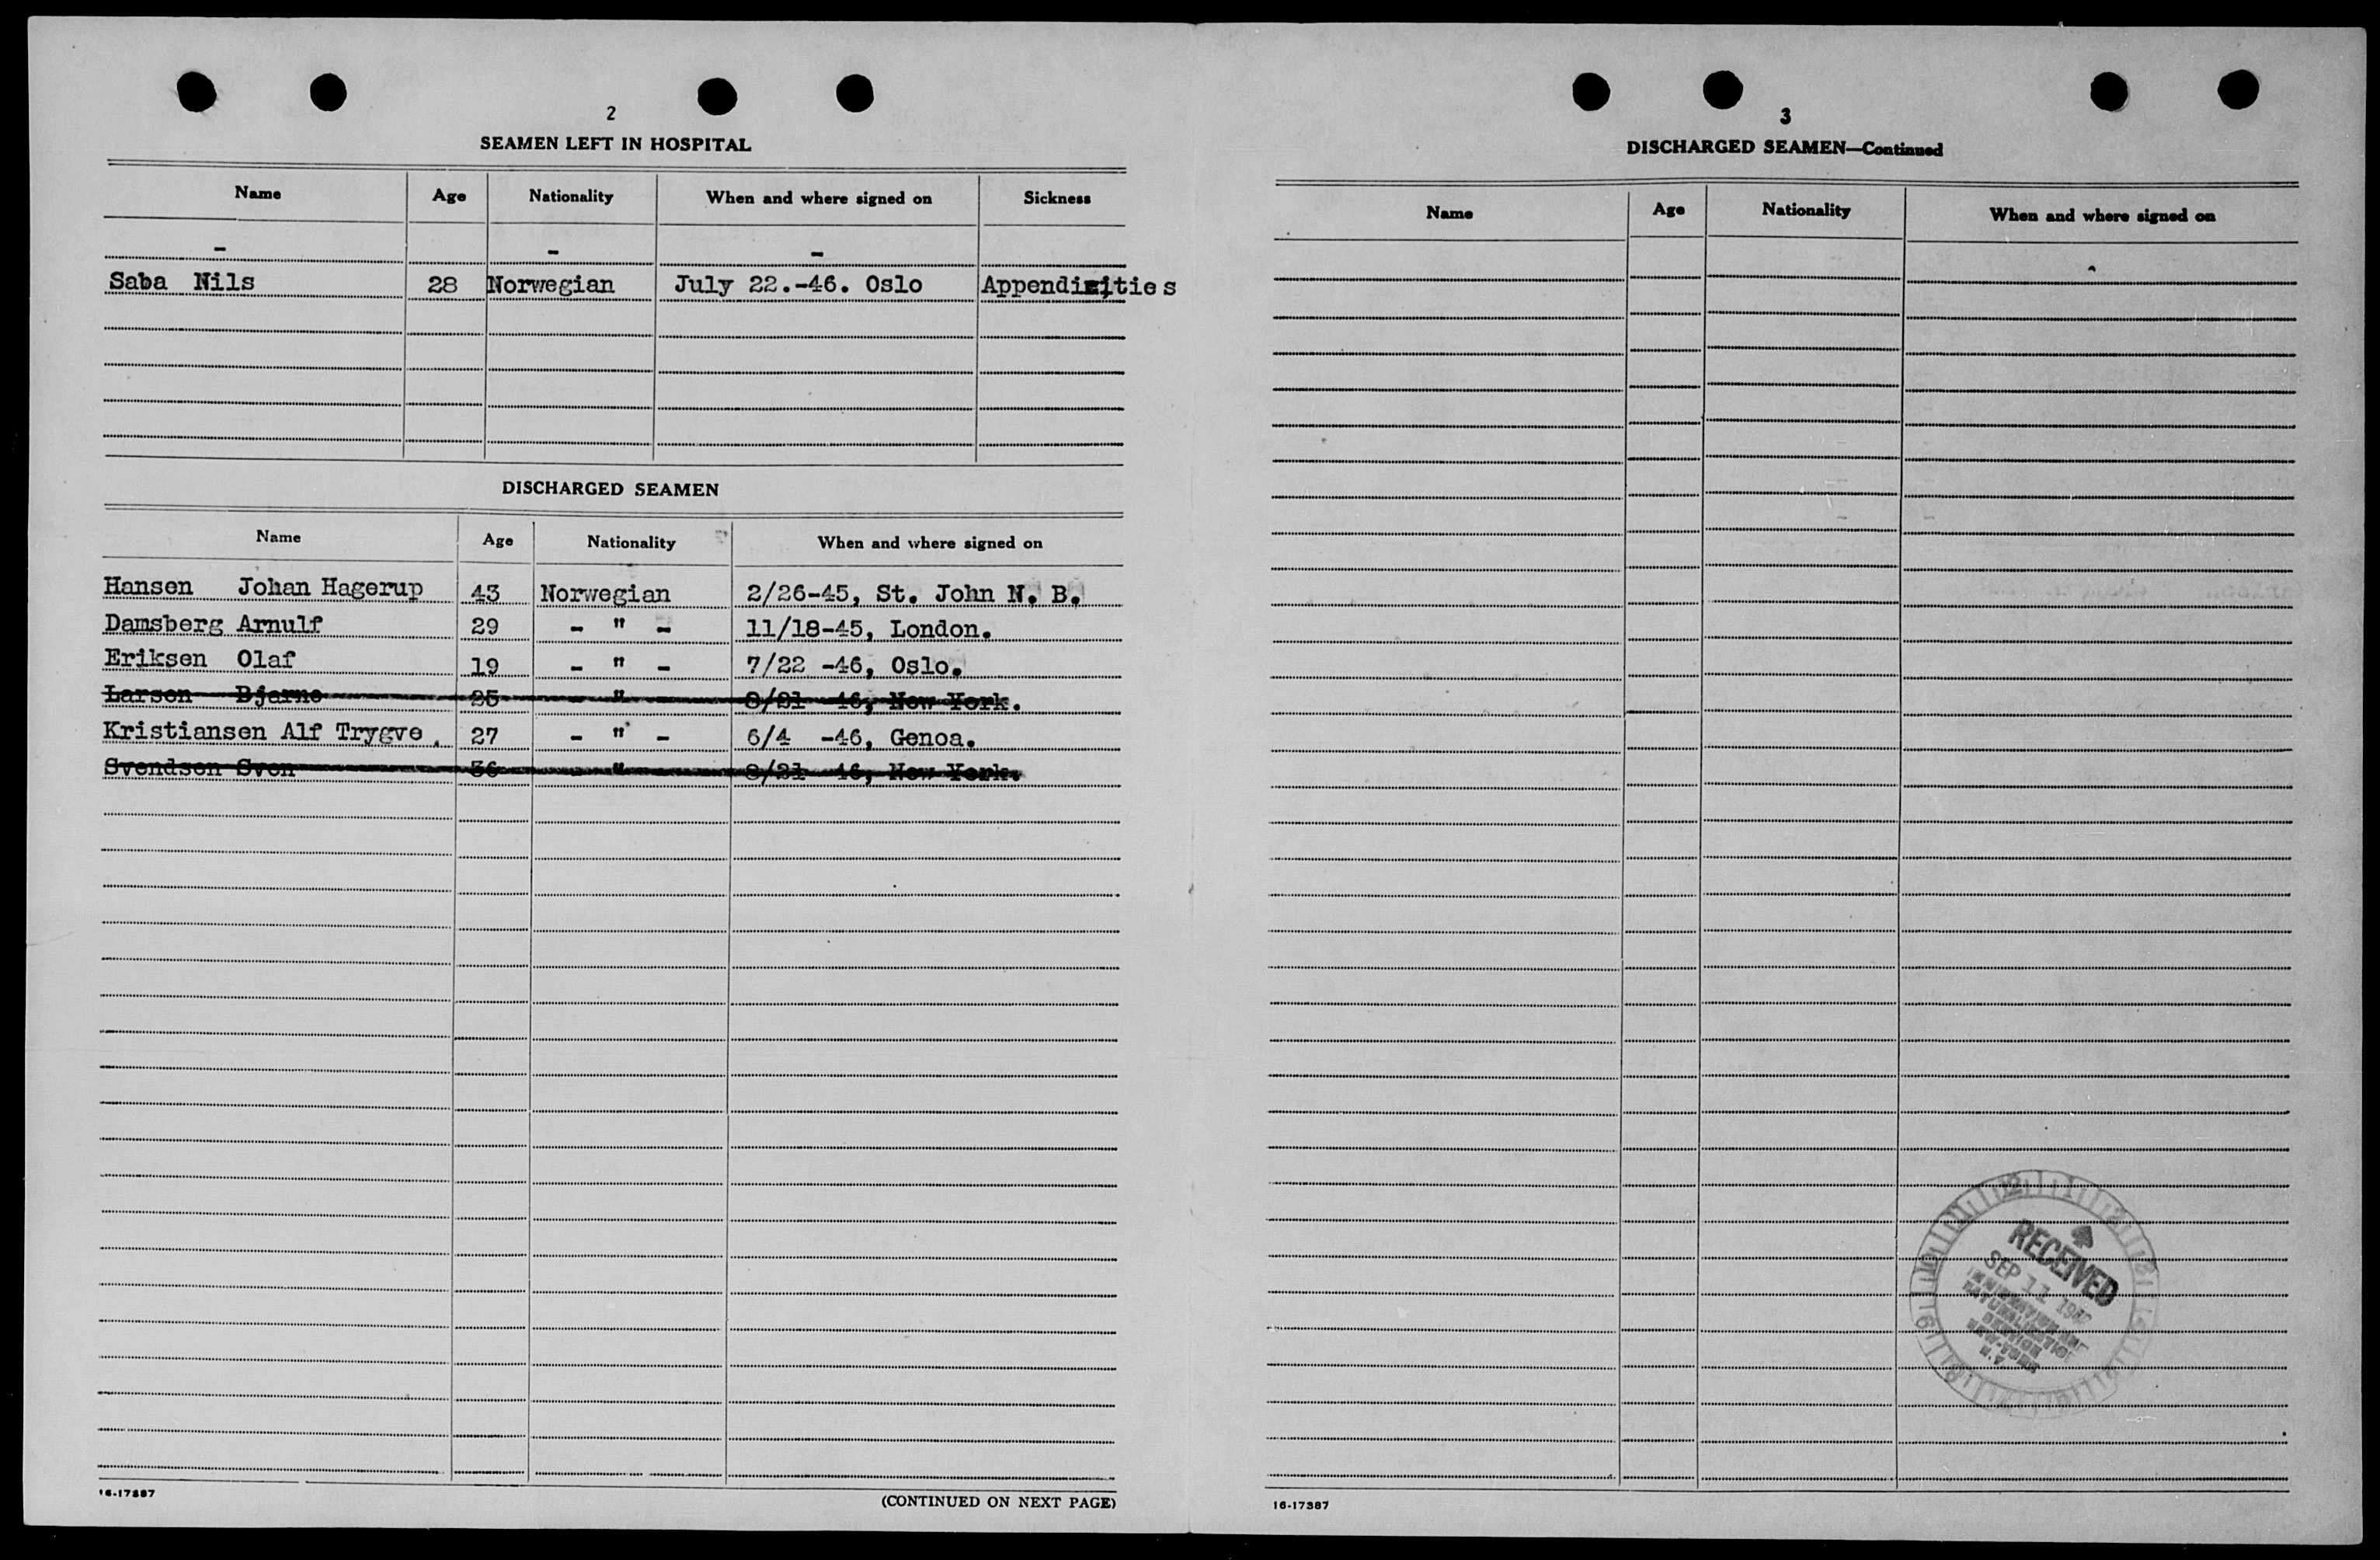 2
SEAMEN LEFT IN HOSPITAL
Name Age Nationality When and where signed on Sickness
- - -
Saba Nils 28 Norwegian July 22.-46. Oslo Appendixities
DISCHARGED SEAMEN
Name Age Nationality When and where signed on
Hansen Johan Hagerup 43 Norwegian 2/26-45, St. John N. B.
Damsberg Arnulf 29 - " - 11/18-45, London.
Eriksen Olaf 19 - " - 7/22 -46, Oslo.
Larsen Bjarne 25 - " - 8/21 -46, New York.
Kristiansen Alf Trygve. 27 - " - 6/4 -46, Genoa.
Svendsen Sven 36 - " - 8/21 -46, New York.
16-17387
(CONTINUED ON NEXT PAGE)
3
DISCHARGED SEAMEN—Continued
Name Age Nationality When and where signed on
RECEIVED
SEP 11
NEW-YORK
N.Y.
16-17387